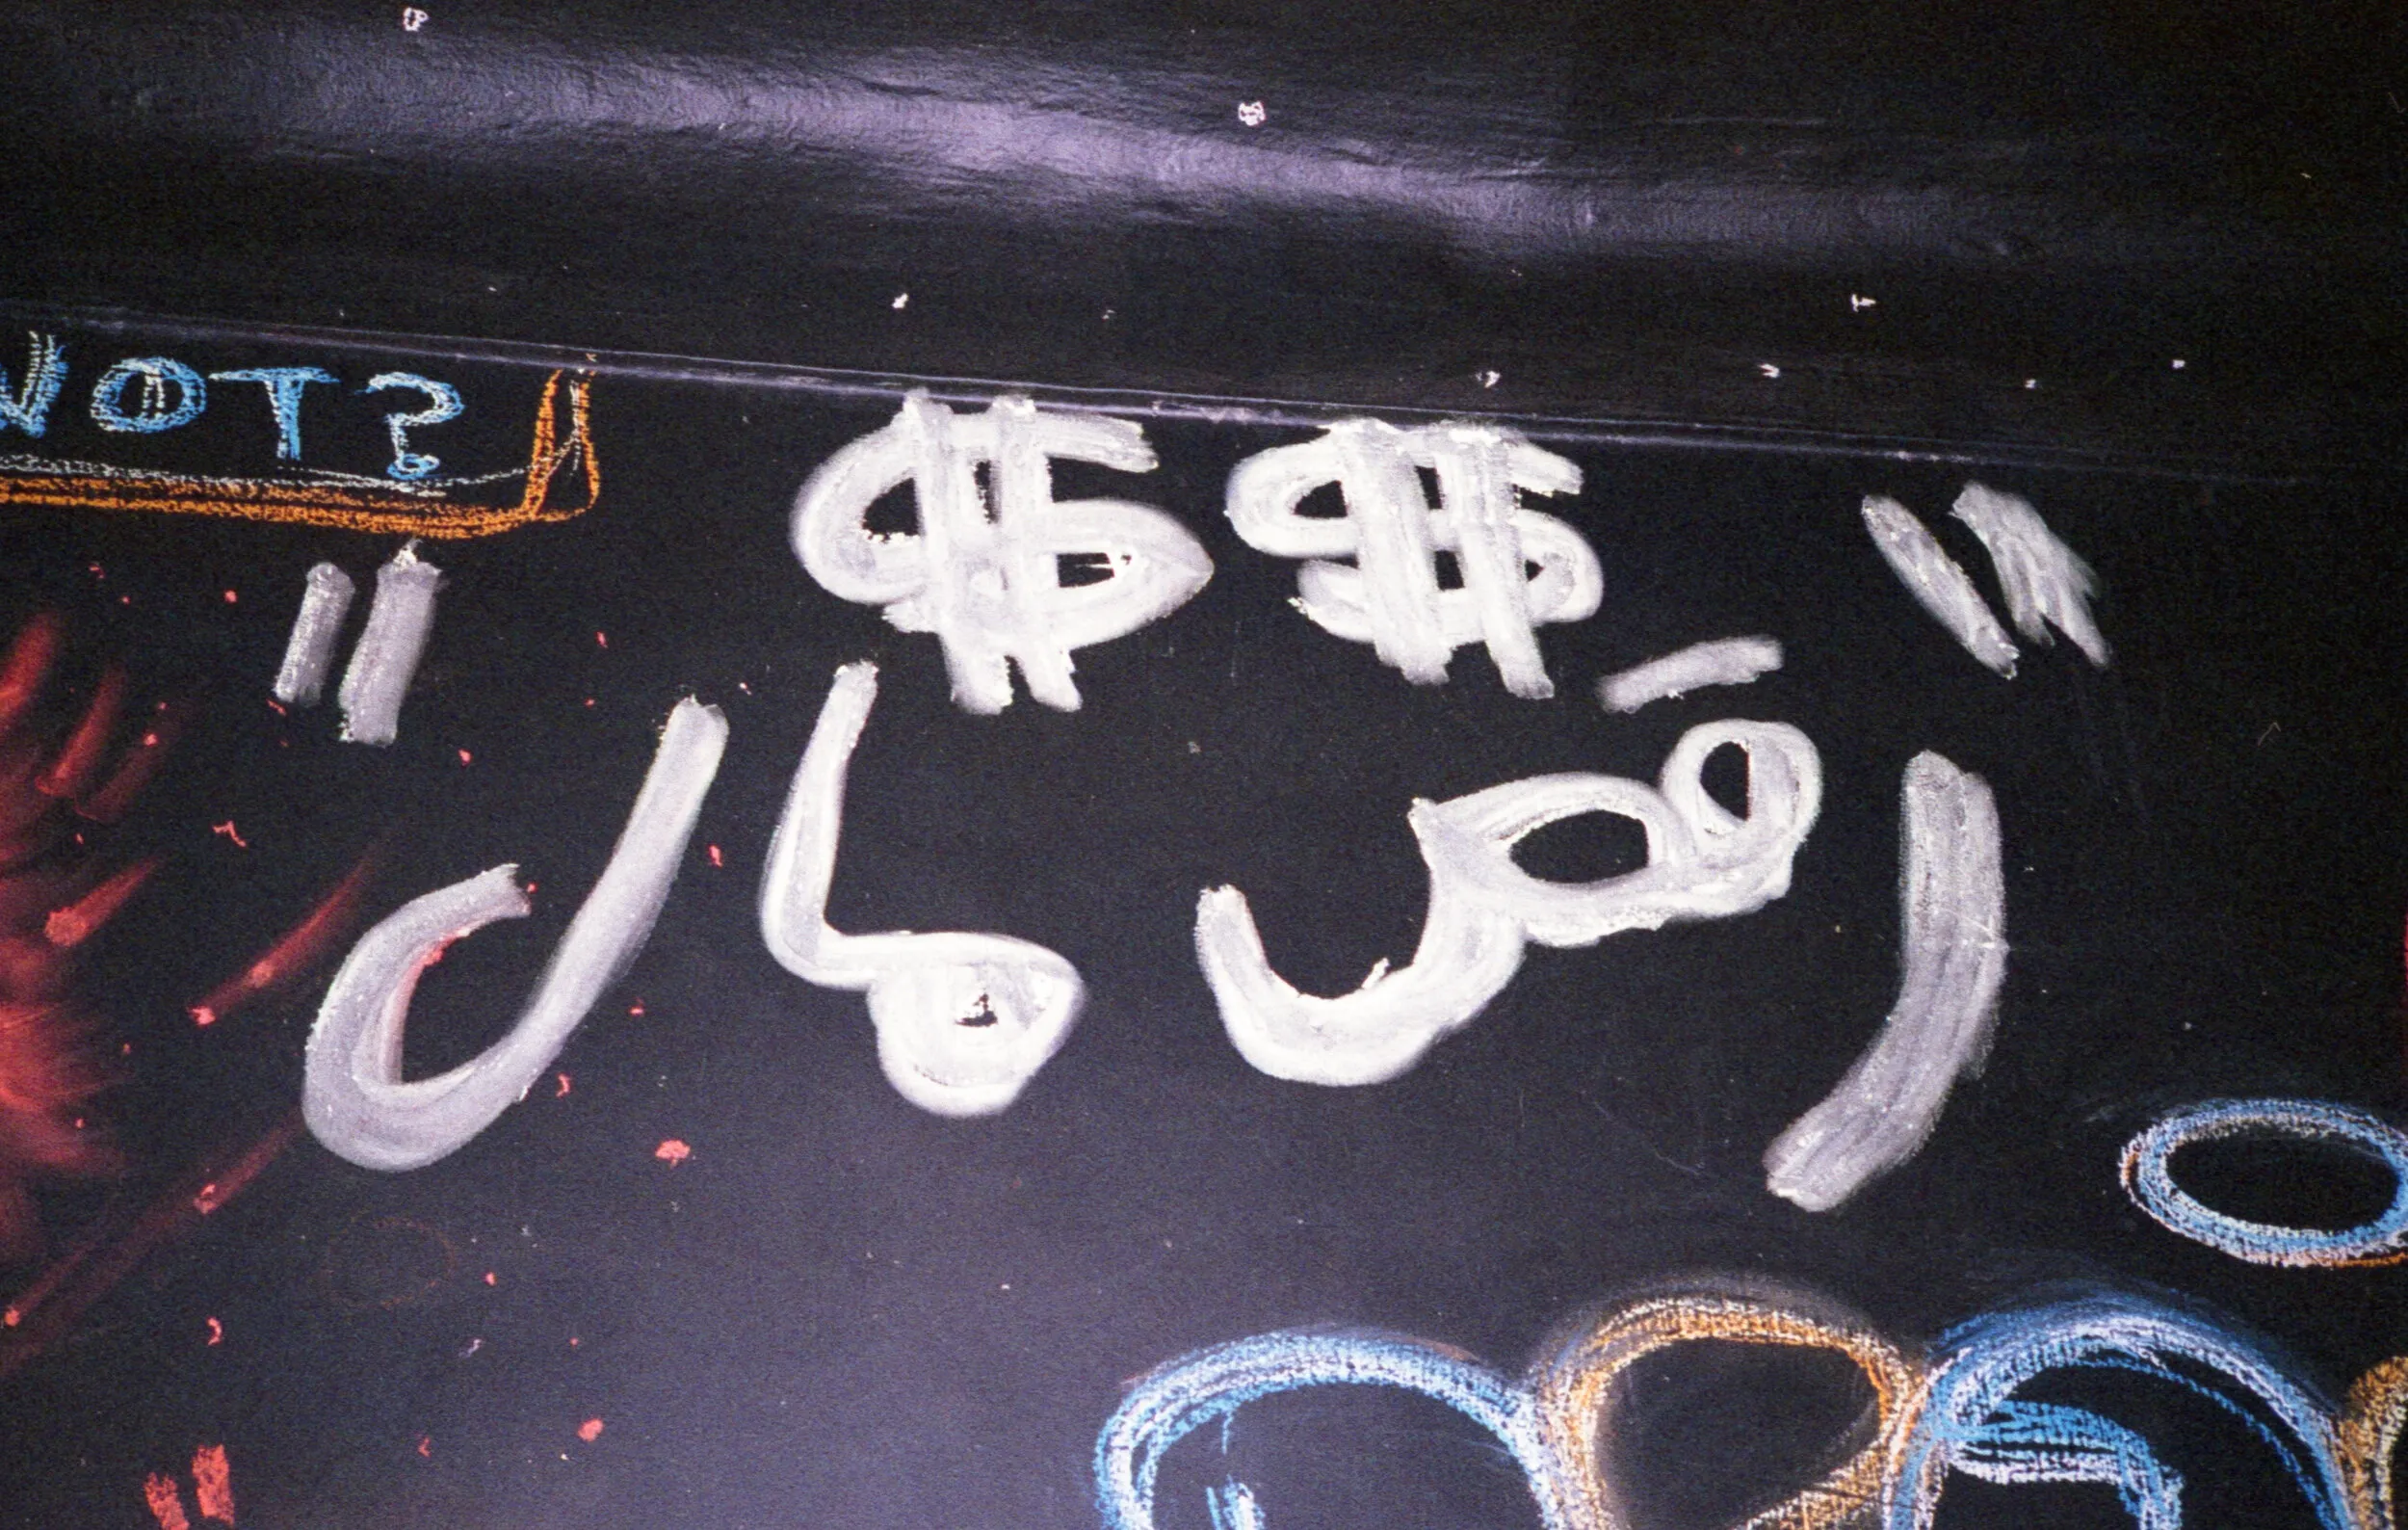 NOT?
$$
"رقص مال"